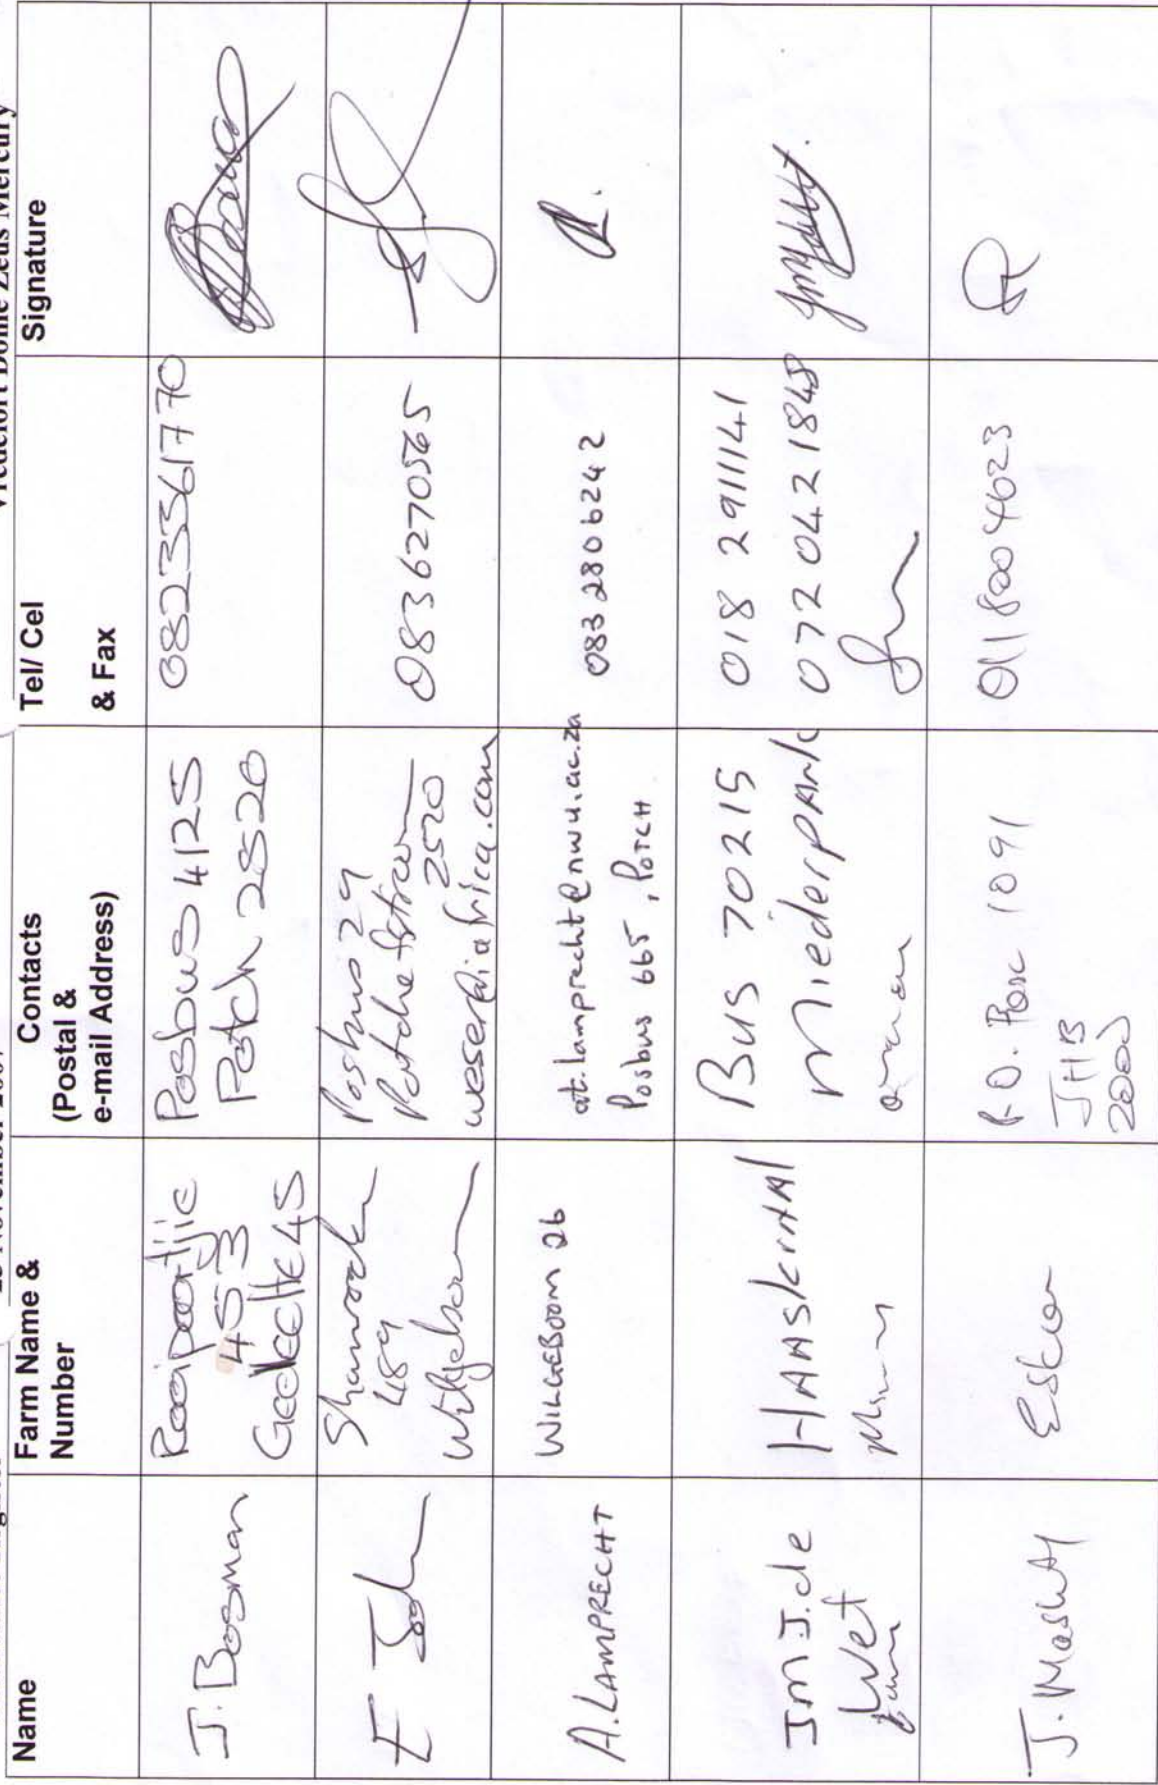 Vredefort Dome Zeus Mercury
Name
Farm Name &
Number
Contacts
(Postal &
e-mail Address)
Tel/ Cel
& Fax
Signature
J. Bosman
Rooipoortjie
453
Gedeelte 45
Posbus 4125
Potch 2520
0823361770
E
Shamrock
489
Posbus 29
Potchefstroom
2520
0836270565
A. LAMPRECHT
WILGEBOOM 26
at.lamprecht@nwu.ac.za
Posbus 665, POTCH
083 280 6242
J M J. de
Wet
HAASKraal
Bus 70215
Miederpark
018 2911141
072 042 1848
J.
P.O. Box 1091
JHB
2000
011 800 4623